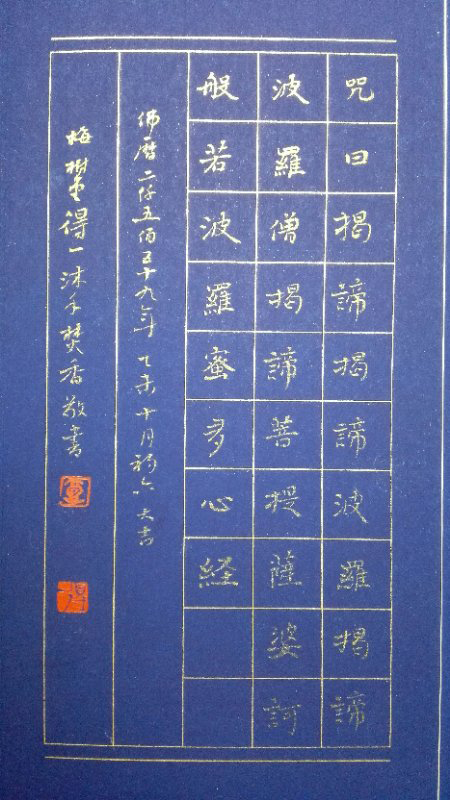 咒曰揭諦揭諦波羅揭諦
波羅僧揭諦菩提薩婆訶
般若波羅蜜多心経
佛曆二仟五佰五十九年 乙未十月初六 大吉
梅樹堂得一沐手焚香敬書